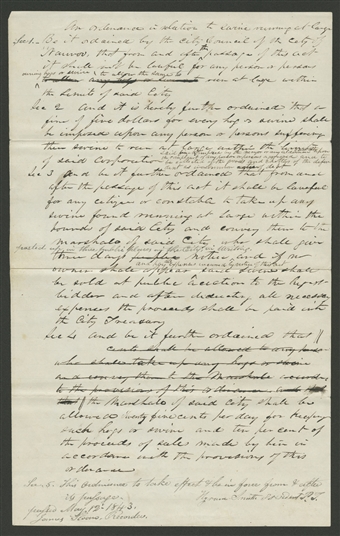 An ordinance in relation to swine running at large
Sec 1. Be it ordained by the City Council of the City of
Nauvoo, that from and after the passage of this act
it shall not be lawful for any person or persons
owning hogs or swine to allow the same to run at large within
the limits of said City
Sec 2 and it is hereby further ordained that a
fine of five dollars for every hog or swine shall
be imposed upon any person or persons suffering
their swine to run at large within the limits
of said Corporation
Sec 3 And be it further ordained that from and
after the passage of this act it shall be lawful
for any citizen or constable to take up any
swine found running at large within the
bounds of said City and convey them to the
Marshall of said City who shall give
four days notice and if no
owner shall appear said swine shall
be sold at public auction to the highest
bidder and after deducting all necessary
expenses the proceeds shall be paid into
the City Treasury
Sec 4 And be it further ordained that
cents shall be allowed to any person
who shall take up any hogs or swine
and convey them to the Marshall according
to the provisions of this ordinance and
the Marshall of said City shall be
allowed twenty five cents per day for keeping
such hogs or swine and ten per cent of
the proceeds of sales made by him in
accordance with the provisions of this
ordinance
Sec 5. This Ordinance to take effect & be in force from & after
its passage.
passed May 12th 1843. Hyrum Smith President P.T.
James Sloan, Recorder